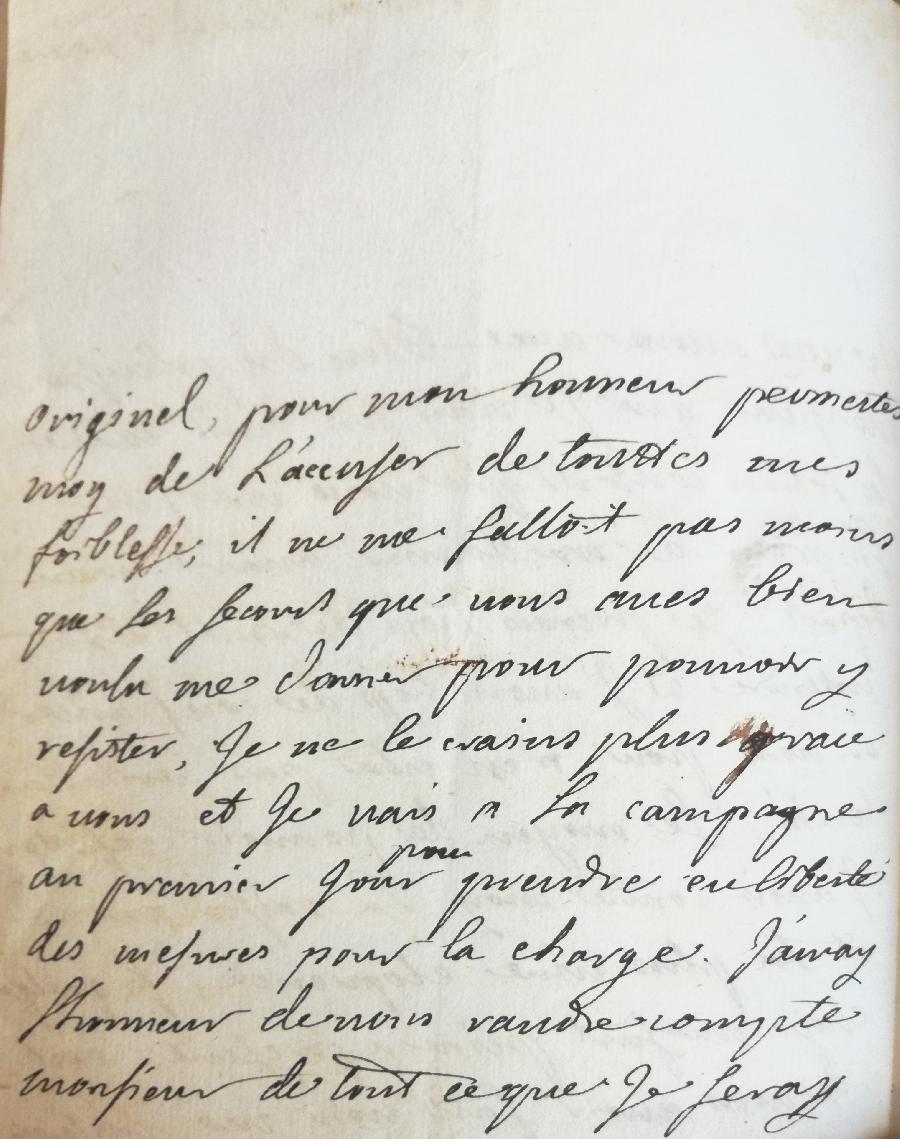 originel, pour mon honneur permettes
moy de L'accuser de touttes mes
foiblesse, il ne me falloit pas moins
que les secours que vous aves bien
voulu me donner pour pouvoir y
resister, Je ne le crains plus grace
a vous et Je vais a La campagne
au premier Jour pour prendre en liberté
des mesures pour la charge. J'auray
l'honneur de vous randre compte
monsieur de tout ce que Je feray